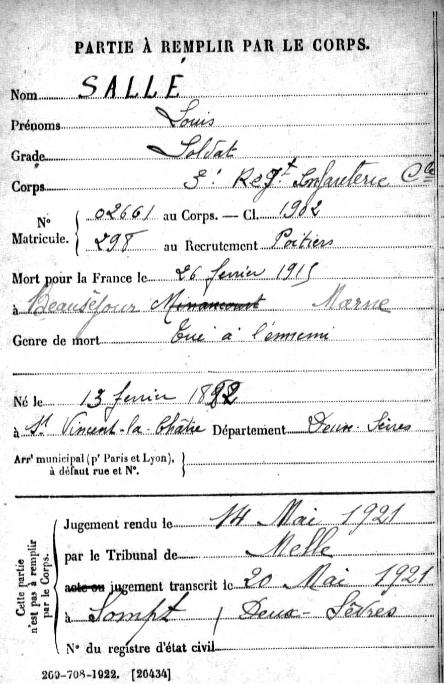 PARTIE À REMPLIR PAR LE CORPS.
Nom SALLÉ
Prénoms Louis
Grade Soldat
Corps 3e Regt Infanterie Cle
N° Matricule. { 02661 au Corps. — Cl. 1902
298 au Recrutement Poitiers
Mort pour la France le 26 fevrier 1915
à Beauséjour Minaucourt Marne
Genre de mort Tué à l'ennemi
Né le 13 fevrier 1882
à St Vincent-la-Châtre Département Deux-Sèvres
Arrt municipal (pr Paris et Lyon), à défaut rue et N°. {
Cette partie n'est pas à remplir par le Corps. {
Jugement rendu le 14 Mai 1921
par le Tribunal de Melle
acte ou jugement transcrit le 20 Mai 1921
à Sompt / Deux-Sèvres
N° du registre d'état civil
269-708-1922. [26434]